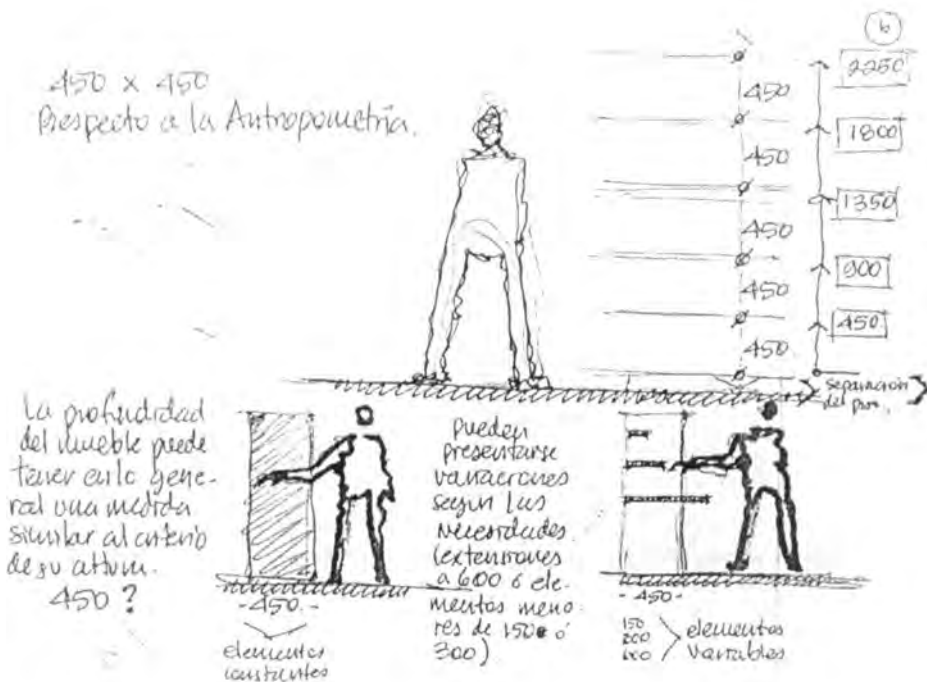 450 x 450
Respecto a la Antropometría.
b
2250
450
1800
450
1350
450
900
450
450
450
separación
del piso.
La profundidad
del mueble puede
tener en lo gene-
ral una medida
similar al criterio
de su altura.
450?
-450.-
elementos
constantes
pueden
presentarse
variaciones
según las
necesidades.
(extensiones
a 600 ó ele-
mentos meno-
res de 150 ó
300)
-450-
150
200
600
elementos
variables